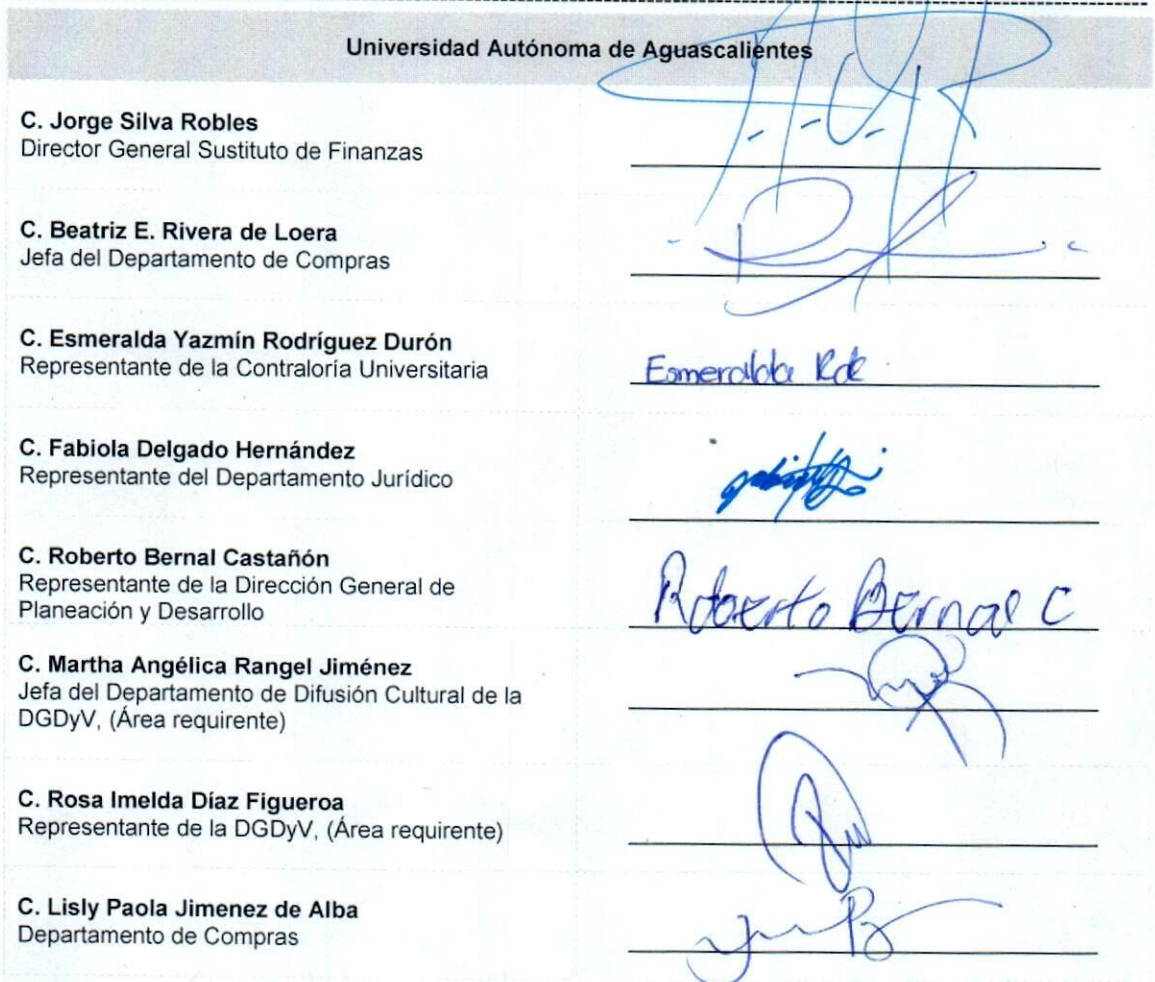 Universidad Autónoma de Aguascalientes
C. Jorge Silva Robles
Director General Sustituto de Finanzas
C. Beatriz E. Rivera de Loera
Jefa del Departamento de Compras
C. Esmeralda Yazmín Rodríguez Durón
Representante de la Contraloría Universitaria
Esmeralda
C. Fabiola Delgado Hernández
Representante del Departamento Jurídico
C. Roberto Bernal Castañón
Representante de la Dirección General de
Planeación y Desarrollo
Roberto Bernal C
C. Martha Angélica Rangel Jiménez
Jefa del Departamento de Difusión Cultural de la
DGDyV, (Área requirente)
C. Rosa Imelda Díaz Figueroa
Representante de la DGDyV, (Área requirente)
C. Lisly Paola Jimenez de Alba
Departamento de Compras